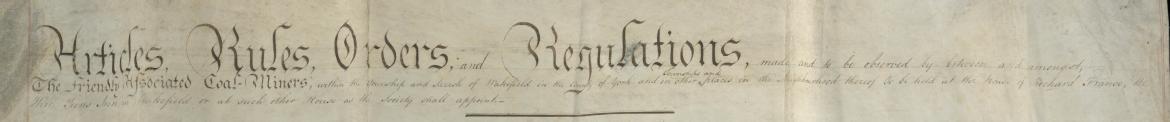 Articles, Rules, Orders, and Regulations, made and to be observed by between and amongst,
The Friendly Associated Coal-Miners, within the Township and Parish of Wakefield in the County of York and in other Townships and places in the Neighbourhood thereof to be held at the House of Richard France, the
in Wakefield or at such other House as the Society shall appoint.